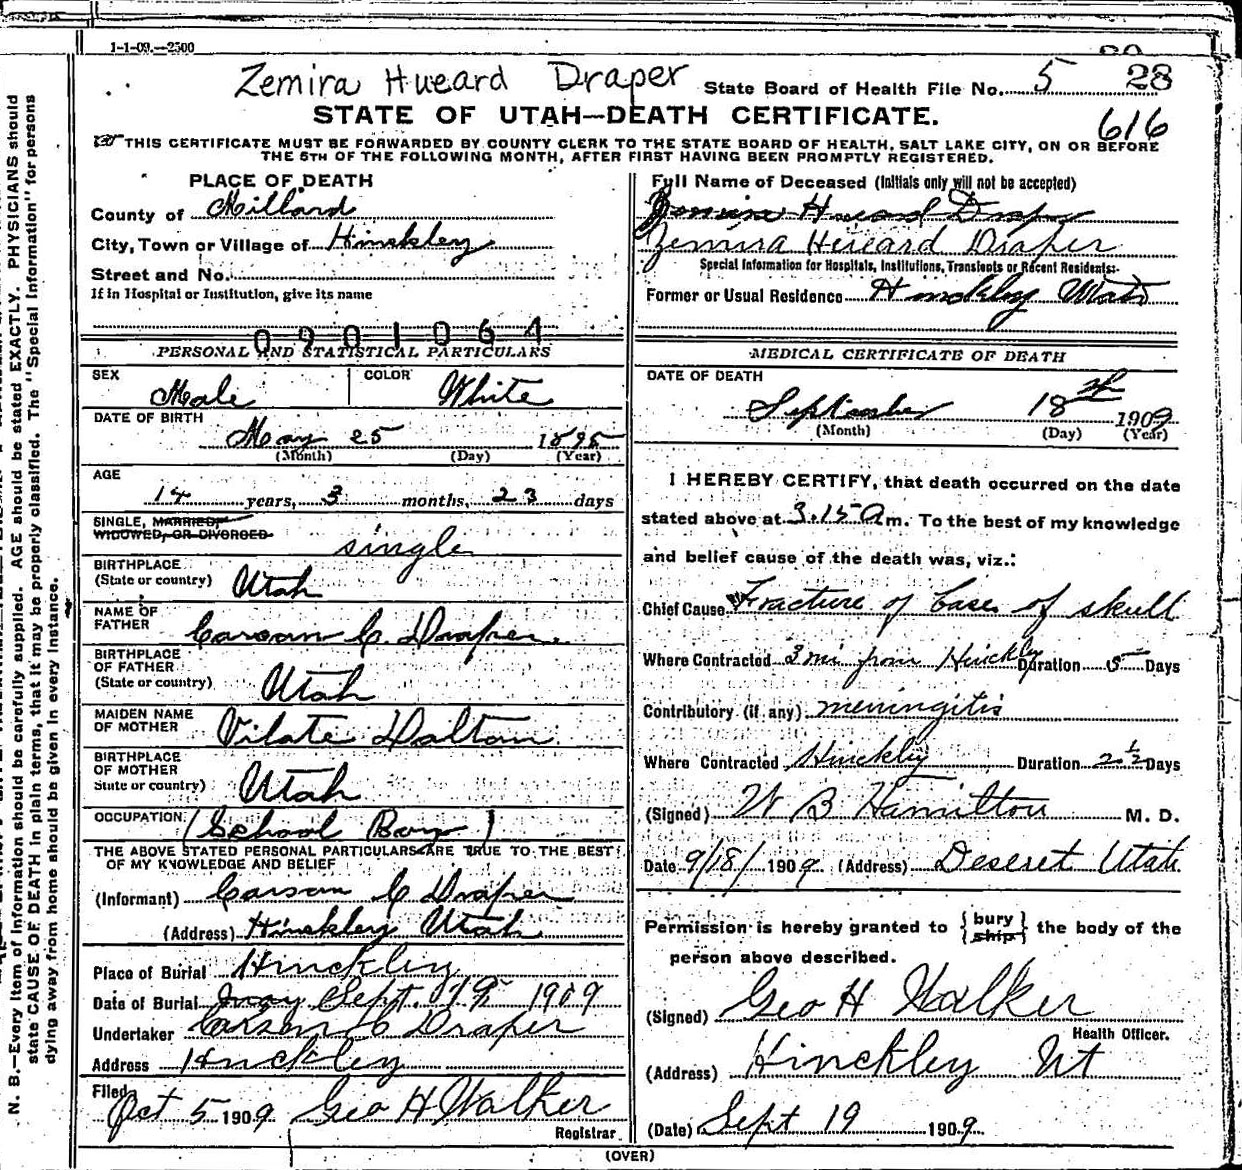 1-1-09.—2500
Zemira Hueard Draper
State Board of Health File No. 5 28
STATE OF UTAH—DEATH CERTIFICATE.
616
THIS CERTIFICATE MUST BE FORWARDED BY COUNTY CLERK TO THE STATE BOARD OF HEALTH, SALT LAKE CITY, ON OR BEFORE
THE 5TH OF THE FOLLOWING MONTH, AFTER FIRST HAVING BEEN PROMPTLY REGISTERED.
PLACE OF DEATH
County of Millard
City, Town or Village of Hinckley
Street and No.
If in Hospital or Institution, give its name
0901064
PERSONAL AND STATISTICAL PARTICULARS
SEX Male COLOR White
DATE OF BIRTH
May 25 1895
(Month) (Day) (Year)
AGE
14 years, 3 months, 23 days
SINGLE, MARRIED,
WIDOWED, OR DIVORCED single
BIRTHPLACE
(State or country) Utah
NAME OF
FATHER Carson C. Draper
BIRTHPLACE
OF FATHER
(State or country) Utah
MAIDEN NAME
OF MOTHER Vilate Dalton
BIRTHPLACE
OF MOTHER
State or country) Utah
OCCUPATION (School Boy)
THE ABOVE STATED PERSONAL PARTICULARS ARE TRUE TO THE BEST
OF MY KNOWLEDGE AND BELIEF
(Informant) Carson C Draper
(Address) Hinckley Utah
Place of Burial Hinckley
Date of Burial May Sept. 19 1909
Undertaker Carson C Draper
Address Hinckley
Filed Oct 5 1909 Geo H Walker
Registrar
Full Name of Deceased (Initials only will not be accepted)
Zemira Hueard Draper
Zemira Hueard Draper
Special Information for Hospitals, Institutions, Transients or Recent Residents:-
Former or Usual Residence Hinckley Utah
MEDICAL CERTIFICATE OF DEATH
DATE OF DEATH
September 18 1909
(Month) (Day) (Year)
I HEREBY CERTIFY, that death occurred on the date
stated above at 3.15 A m. To the best of my knowledge
and belief cause of the death was, viz.:
Chief Cause Fracture of base of skull
Where Contracted 3 mi from Hinckley Duration 5 Days
Contributory (if any) meningitis
Where Contracted Hinckley Duration 2½ Days
(Signed) W B Hamilton M. D.
Date 9/18/ 1909 (Address) Deseret Utah
Permission is hereby granted to { bury ship } the body of the
person above described.
(Signed) Geo H Walker
Health Officer.
(Address) Hinckley Ut
(Date) Sept 19 1909.
(OVER)
N. B.—Every item of information should be carefully supplied. AGE should be stated EXACTLY. PHYSICIANS should
state CAUSE OF DEATH in plain terms, that it may be properly classified. The "Special Information" for persons
dying away from home should be given in every instance.